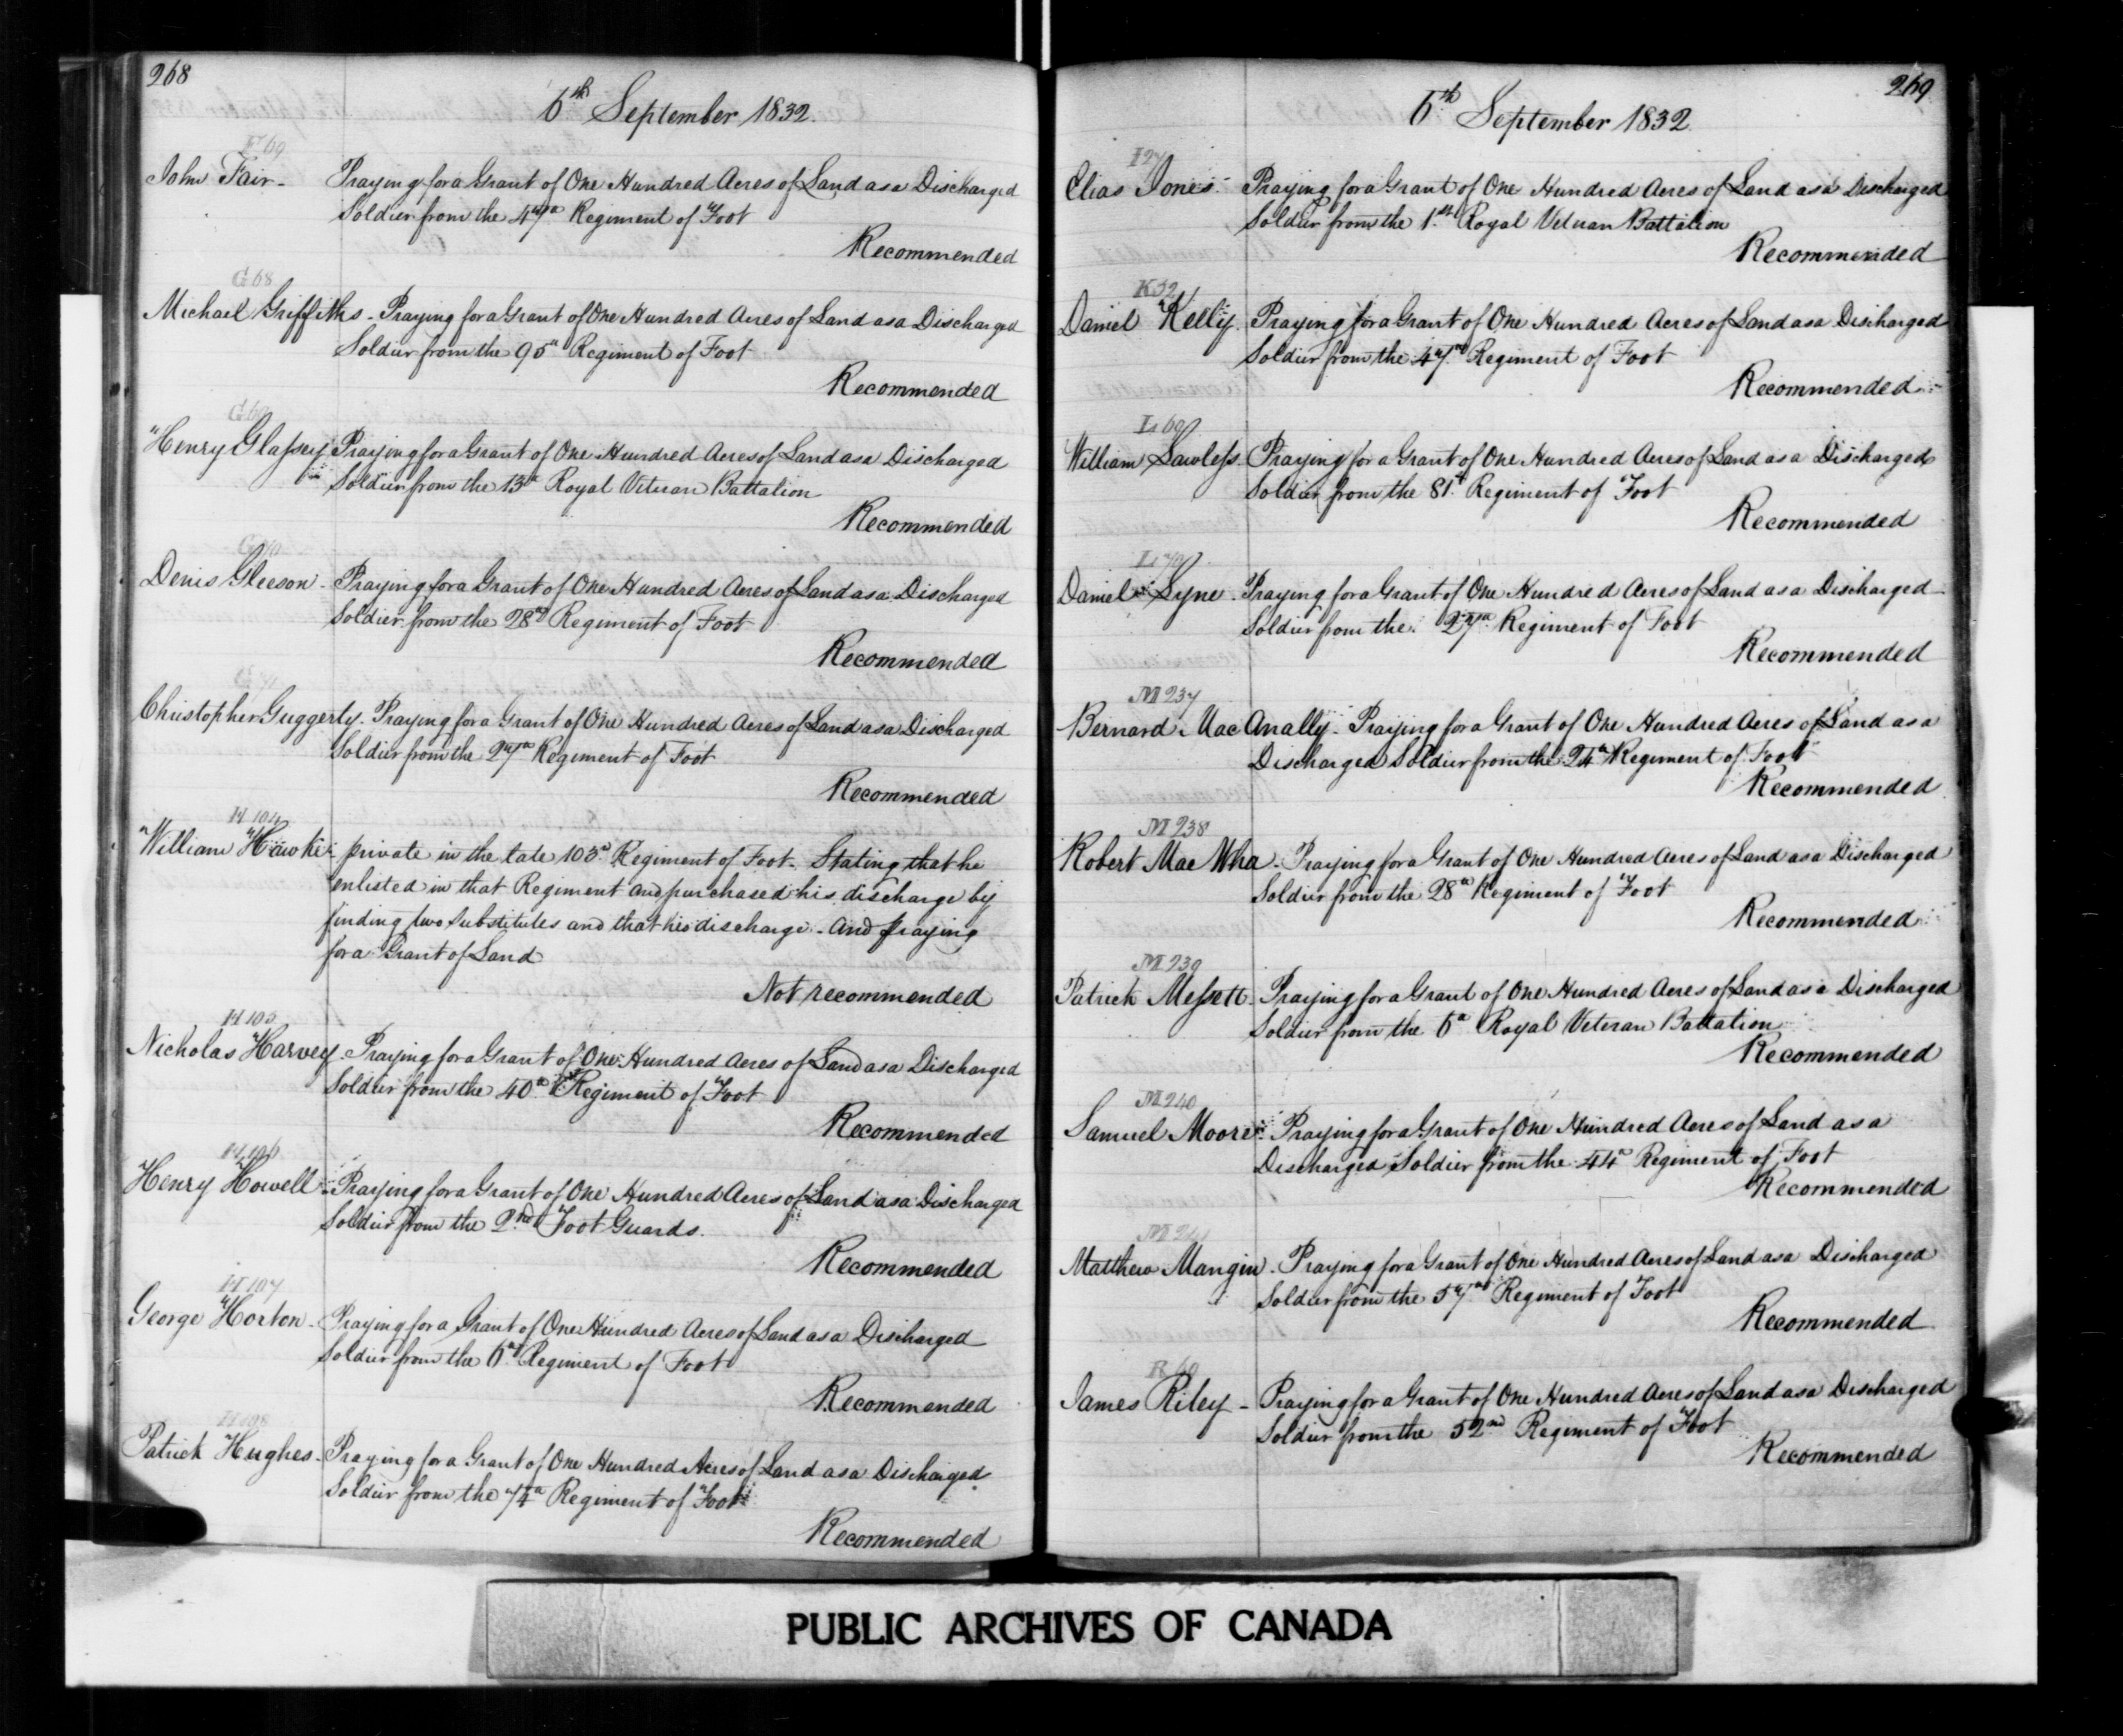 268
6th September 1832.
F 69
John Fair - Praying for a Grant of One Hundred Acres of Land as a Discharged
Soldier from the 47th Regiment of Foot
Recommended
G 68
Michael Griffiths - Praying for a Grant of One Hundred Acres of Land as a Discharged
Soldier from the 95th Regiment of Foot
Recommended
G 69
Henry Glassey Praying for a Grant of One Hundred Acres of Land as a Discharged
Soldier from the 13th Royal Veteran Battalion
Recommended
G 70
Denis Gleeson - Praying for a Grant of One Hundred Acres of Land as a Discharged
Soldier from the 28th Regiment of Foot
Recommended
G 71
Christopher Guggerty - Praying for a Grant of One Hundred Acres of Land as a Discharged
Soldier from the 27th Regiment of Foot
Recommended
H 104
William Hawke - private in the late 103rd Regiment of Foot - Stating that he
enlisted in that Regiment and purchased his discharge by
finding two Substitutes and that his discharge - And praying
for a Grant of Land
Not recommended
H 105
Nicholas Harvey - Praying for a Grant of One Hundred Acres of Land as a Discharged
Soldier from the 40th Regiment of Foot
Recommended
H 106
Henry Howell - Praying for a Grant of One Hundred Acres of Land as a Discharged
Soldier from the 2nd Foot Guards.
Recommended
H 107
George Horton - Praying for a Grant of One Hundred Acres of Land as a Discharged
Soldier from the 6th Regiment of Foot
Recommended
H 108
Patrick Hughes - Praying for a Grant of One Hundred Acres of Land as a Discharged
Soldier from the 74th Regiment of Foot
Recommended
269
6th September 1832
I 27
Elias Jones - Praying for a Grant of One Hundred Acres of Land as a Discharged
Soldier from the 1st Royal Veteran Battalion
Recommended
K 32
Daniel Kelly. Praying for a Grant of One Hundred Acres of Land as a Discharged
Soldier from the 47th Regiment of Foot
Recommended
L 69
William Lawless - Praying for a Grant of One Hundred Acres of Land as a Discharged
Soldier from the 81st Regiment of Foot
Recommended
L 70
Daniel Lyne - Praying for a Grant of One Hundred Acres of Land as a Discharged
Soldier from the 27th Regiment of Foot
Recommended
M 237
Bernard MacAnally - Praying for a Grant of One Hundred Acres of Land as a
Discharged Soldier from the 24th Regiment of Foot
Recommended
M 238
Robert MacWha - Praying for a Grant of One Hundred Acres of Land as a Discharged
Soldier from the 28th Regiment of Foot
Recommended
M 239
Patrick Messett - Praying for a Grant of One Hundred Acres of Land as a Discharged
Soldier from the 6th Royal Veteran Battalion
Recommended
M 240
Samuel Moore - Praying for a Grant of One Hundred Acres of Land as a
Discharged Soldier from the 44th Regiment of Foot
Recommended
M 241
Matthew Mangin - Praying for a Grant of One Hundred Acres of Land as a Discharged
Soldier from the 57th Regiment of Foot
Recommended
R 69
James Riley - Praying for a Grant of One Hundred Acres of Land as a Discharged
Soldier from the 52nd Regiment of Foot
Recommended
PUBLIC ARCHIVES OF CANADA